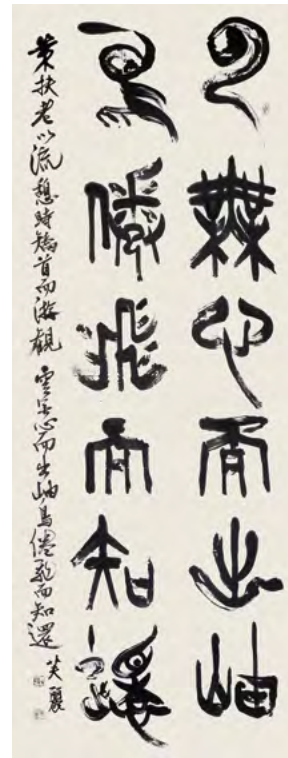 云無心而出岫
鳥倦飛而知還
策扶老以流憩時矯首而游觀 雲無心而出岫鳥倦飛而知還 麗